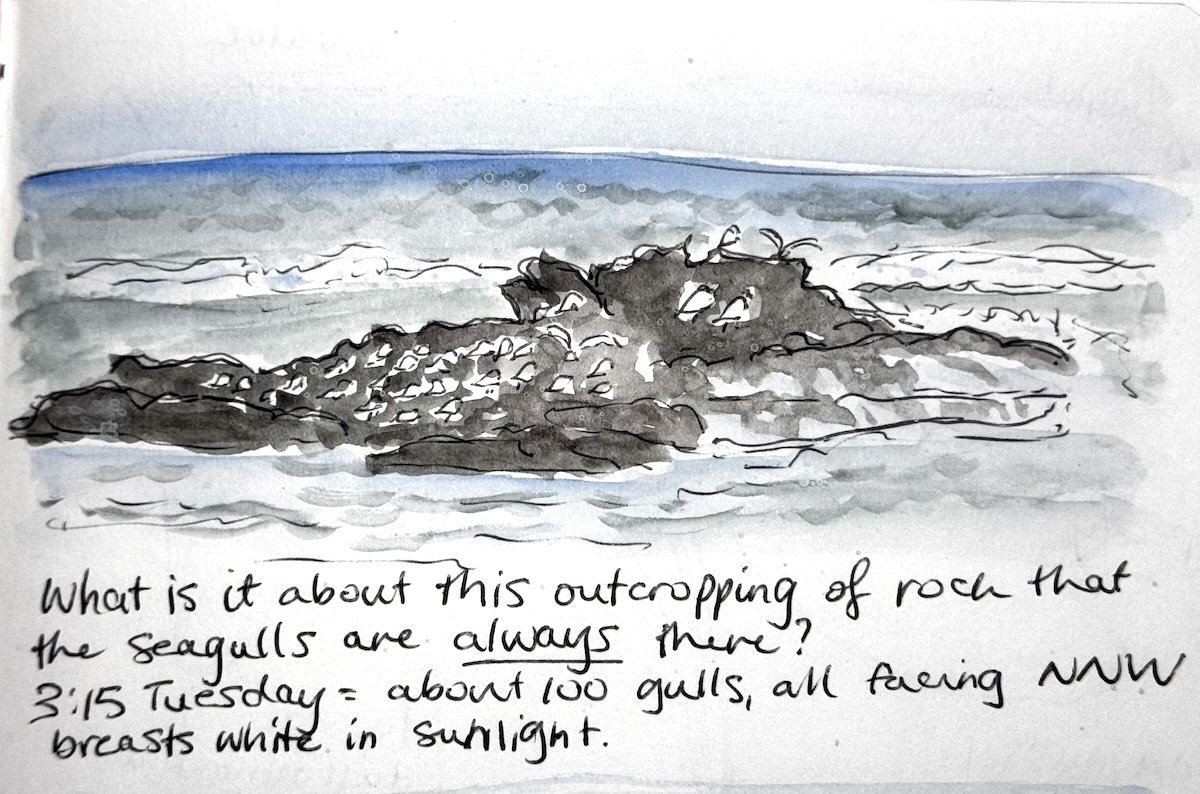 What is it about this outcropping of rock that
the seagulls are always there?
3:15 Tuesday = about 100 gulls, all facing NNW
breasts white in sunlight.